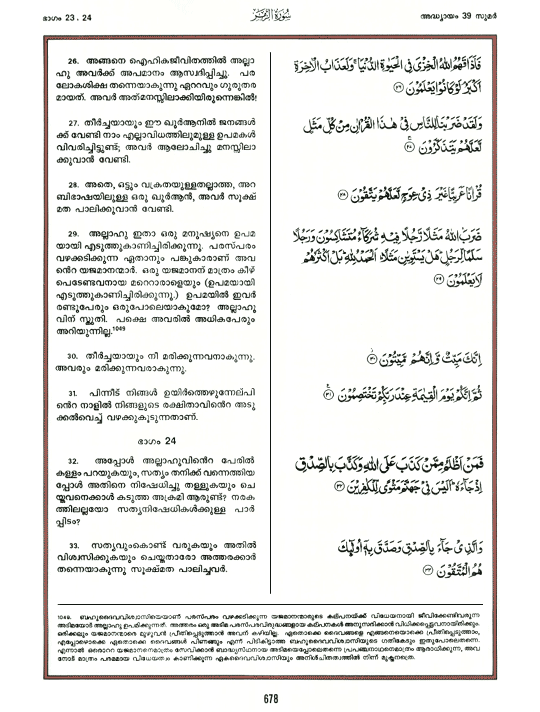 ഭാഗം 23. 24
سُورَةُ الزُّمَر
അദ്ധ്യായം 39 സുമർ
26. അങ്ങനെ ഐഹികജീവിതത്തിൽ അല്ലാ
ഹു അവർക്ക് അപമാനം ആസ്വദിപ്പിച്ചു. പര
ലോകശിക്ഷ തന്നെയാകുന്നു ഏററവും ഗുരുതര
മായത്. അവർ അത് മനസ്സിലാക്കിയിരുന്നെങ്കിൽ!
فَأَذَاقَهُمُ اللَّهُ الْخِزْيَ فِي الْحَيَوٰةِ الدُّنْيَا ۖ وَلَعَذَابُ الْآخِرَةِ
أَكْبَرُ لَوْ كَانُوا يَعْلَمُونَ ﴿٢٦﴾
27. തീർച്ചയായും ഈ ഖുർആനിൽ ജനങ്ങൾ
ക്ക് വേണ്ടി നാം എല്ലാവിധത്തിലുമുള്ള ഉപമകൾ
വിവരിച്ചിട്ടുണ്ട്; അവർ ആലോചിച്ചു മനസ്സിലാ
ക്കുവാൻ വേണ്ടി.
وَلَقَدْ ضَرَبْنَا لِلنَّاسِ فِي هَٰذَا الْقُرْآنِ مِنْ كُلِّ مَثَلٍ
لَعَلَّهُمْ يَتَذَكَّرُونَ ﴿٢٧﴾
28. അതെ, ഒട്ടും വക്രതയുള്ളതല്ലാത്ത, അറ
ബിഭാഷയിലുള്ള ഒരു ഖുർആൻ, അവർ സൂക്ഷ്
മത പാലിക്കുവാൻ വേണ്ടി.
قُرْآنًا عَرَبِيًّا غَيْرَ ذِي عِوَجٍ لَعَلَّهُمْ يَتَّقُونَ ﴿٢٨﴾
29. അല്ലാഹു ഇതാ ഒരു മനുഷ്യനെ ഉപമ
യായി എടുത്തുകാണിച്ചിരിക്കുന്നു. പരസ്പരം
വഴക്കടിക്കുന്ന ഏതാനും പങ്കുകാരാണ് അവ
ൻെറ യജമാനന്മാർ. ഒരു യജമാനന് മാത്രം കീഴ്
പെടേണ്ടവനായ മറെറാരാളെയും (ഉപമയായി
എടുത്തുകാണിച്ചിരിക്കുന്നു.) ഉപമയിൽ ഇവർ
രണ്ടുപേരും ഒരുപോലെയാകുമോ? അല്ലാഹു
വിന് സ്തുതി. പക്ഷെ അവരിൽ അധികപേരും
അറിയുന്നില്ല.1049
ضَرَبَ اللَّهُ مَثَلًا رَجُلًا فِيهِ شُرَكَاءُ مُتَشَاكِسُونَ وَرَجُلًا
سَلَمًا لِرَجُلٍ هَلْ يَسْتَوِيَانِ مَثَلًا ۚ الْحَمْدُ لِلَّهِ ۚ بَلْ أَكْثَرُهُمْ
لَا يَعْلَمُونَ ﴿٢٩﴾
30. തീർച്ചയായും നീ മരിക്കുന്നവനാകുന്നു.
അവരും മരിക്കുന്നവരാകുന്നു.
إِنَّكَ مَيِّتٌ وَإِنَّهُمْ مَيِّتُونَ ﴿٣٠﴾
31. പിന്നീട് നിങ്ങൾ ഉയിർത്തെഴുന്നേല്പി
ൻെറ നാളിൽ നിങ്ങളുടെ രക്ഷിതാവിൻെറ അടു
ക്കൽവെച്ച് വഴക്കുകൂടുന്നതാണ്.
ثُمَّ إِنَّكُمْ يَوْمَ الْقِيَامَةِ عِنْدَ رَبِّكُمْ تَخْتَصِمُونَ ﴿٣١﴾
ഭാഗം 24
32. അപ്പോൾ അല്ലാഹുവിൻെറ പേരിൽ
കള്ളം പറയുകയും, സത്യം തനിക്ക് വന്നെത്തിയ
പ്പോൾ അതിനെ നിഷേധിച്ചു തള്ളുകയും ചെ
യ്തവനെക്കാൾ കടുത്ത അക്രമി ആരുണ്ട്? നരക
ത്തിലല്ലയോ സത്യനിഷേധികൾക്കുള്ള പാർ
പ്പിടം?
فَمَنْ أَظْلَمُ مِمَّنْ كَذَبَ عَلَى اللَّهِ وَكَذَّبَ بِالصِّدْقِ
إِذْ جَاءَهُ ۚ أَلَيْسَ فِي جَهَنَّمَ مَثْوًى لِلْكَافِرِينَ ﴿٣٢﴾
33. സത്യവുംകൊണ്ട് വരുകയും അതിൽ
വിശ്വസിക്കുകയും ചെയ്തതാരോ അത്തരക്കാർ
തന്നെയാകുന്നു സൂക്ഷ്മത പാലിച്ചവർ.
وَالَّذِي جَاءَ بِالصِّدْقِ وَصَدَّقَ بِهِ ۙ أُولَٰئِكَ
هُمُ الْمُتَّقُونَ ﴿٣٣﴾
1049. ബഹുദൈവവിശ്വാസിയെയാണ് പരസ്പരം വഴക്കടിക്കുന്ന യജമാനന്മാരുടെ കല്പനയ്ക്ക് വിധേയനായി ജീവിക്കേണ്ടിവരുന്ന
അടിമയോട് അല്ലാഹു ഉപമിക്കുന്നത്. അത്തരം ഒരു അടിമ പരസ്പരവിരുദ്ധങ്ങളായ കല്പനകൾ അനുസരിക്കാൻ വിധിക്കപ്പെട്ടവനായിരിക്കും.
ഒരിക്കലും യജമാനന്മാരെ മുഴുവൻ പ്രീതിപ്പെടുത്താൻ അവന് കഴിയില്ല. ഏതൊക്കെ ദൈവങ്ങളെ എങ്ങനെയൊക്കെ പ്രീതിപ്പെടുത്താം,
എപ്പോഴൊക്കെ ഏതൊക്കെ ദൈവങ്ങൾ പിണങ്ങും എന്ന് പിടികിട്ടാത്ത ബഹുദൈവവിശ്വാസിയുടെ ഗതികേടും ഇതുപോലെതന്നെ.
എന്നാൽ ഒരൊററ യജമാനനെമാത്രം സേവിക്കാൻ ബാദ്ധ്യസ്ഥനായ അടിമയെപ്പോലെതന്നെ പ്രപഞ്ചനാഥനെമാത്രം ആരാധിക്കുന്ന, അവ
നോട് മാത്രം പരമമായ വിധേയത്വം കാണിക്കുന്ന ഏകദൈവവിശ്വാസിയും അനിശ്ചിതത്തിൽ നിന്ന് മുക്തനത്രെ.
678